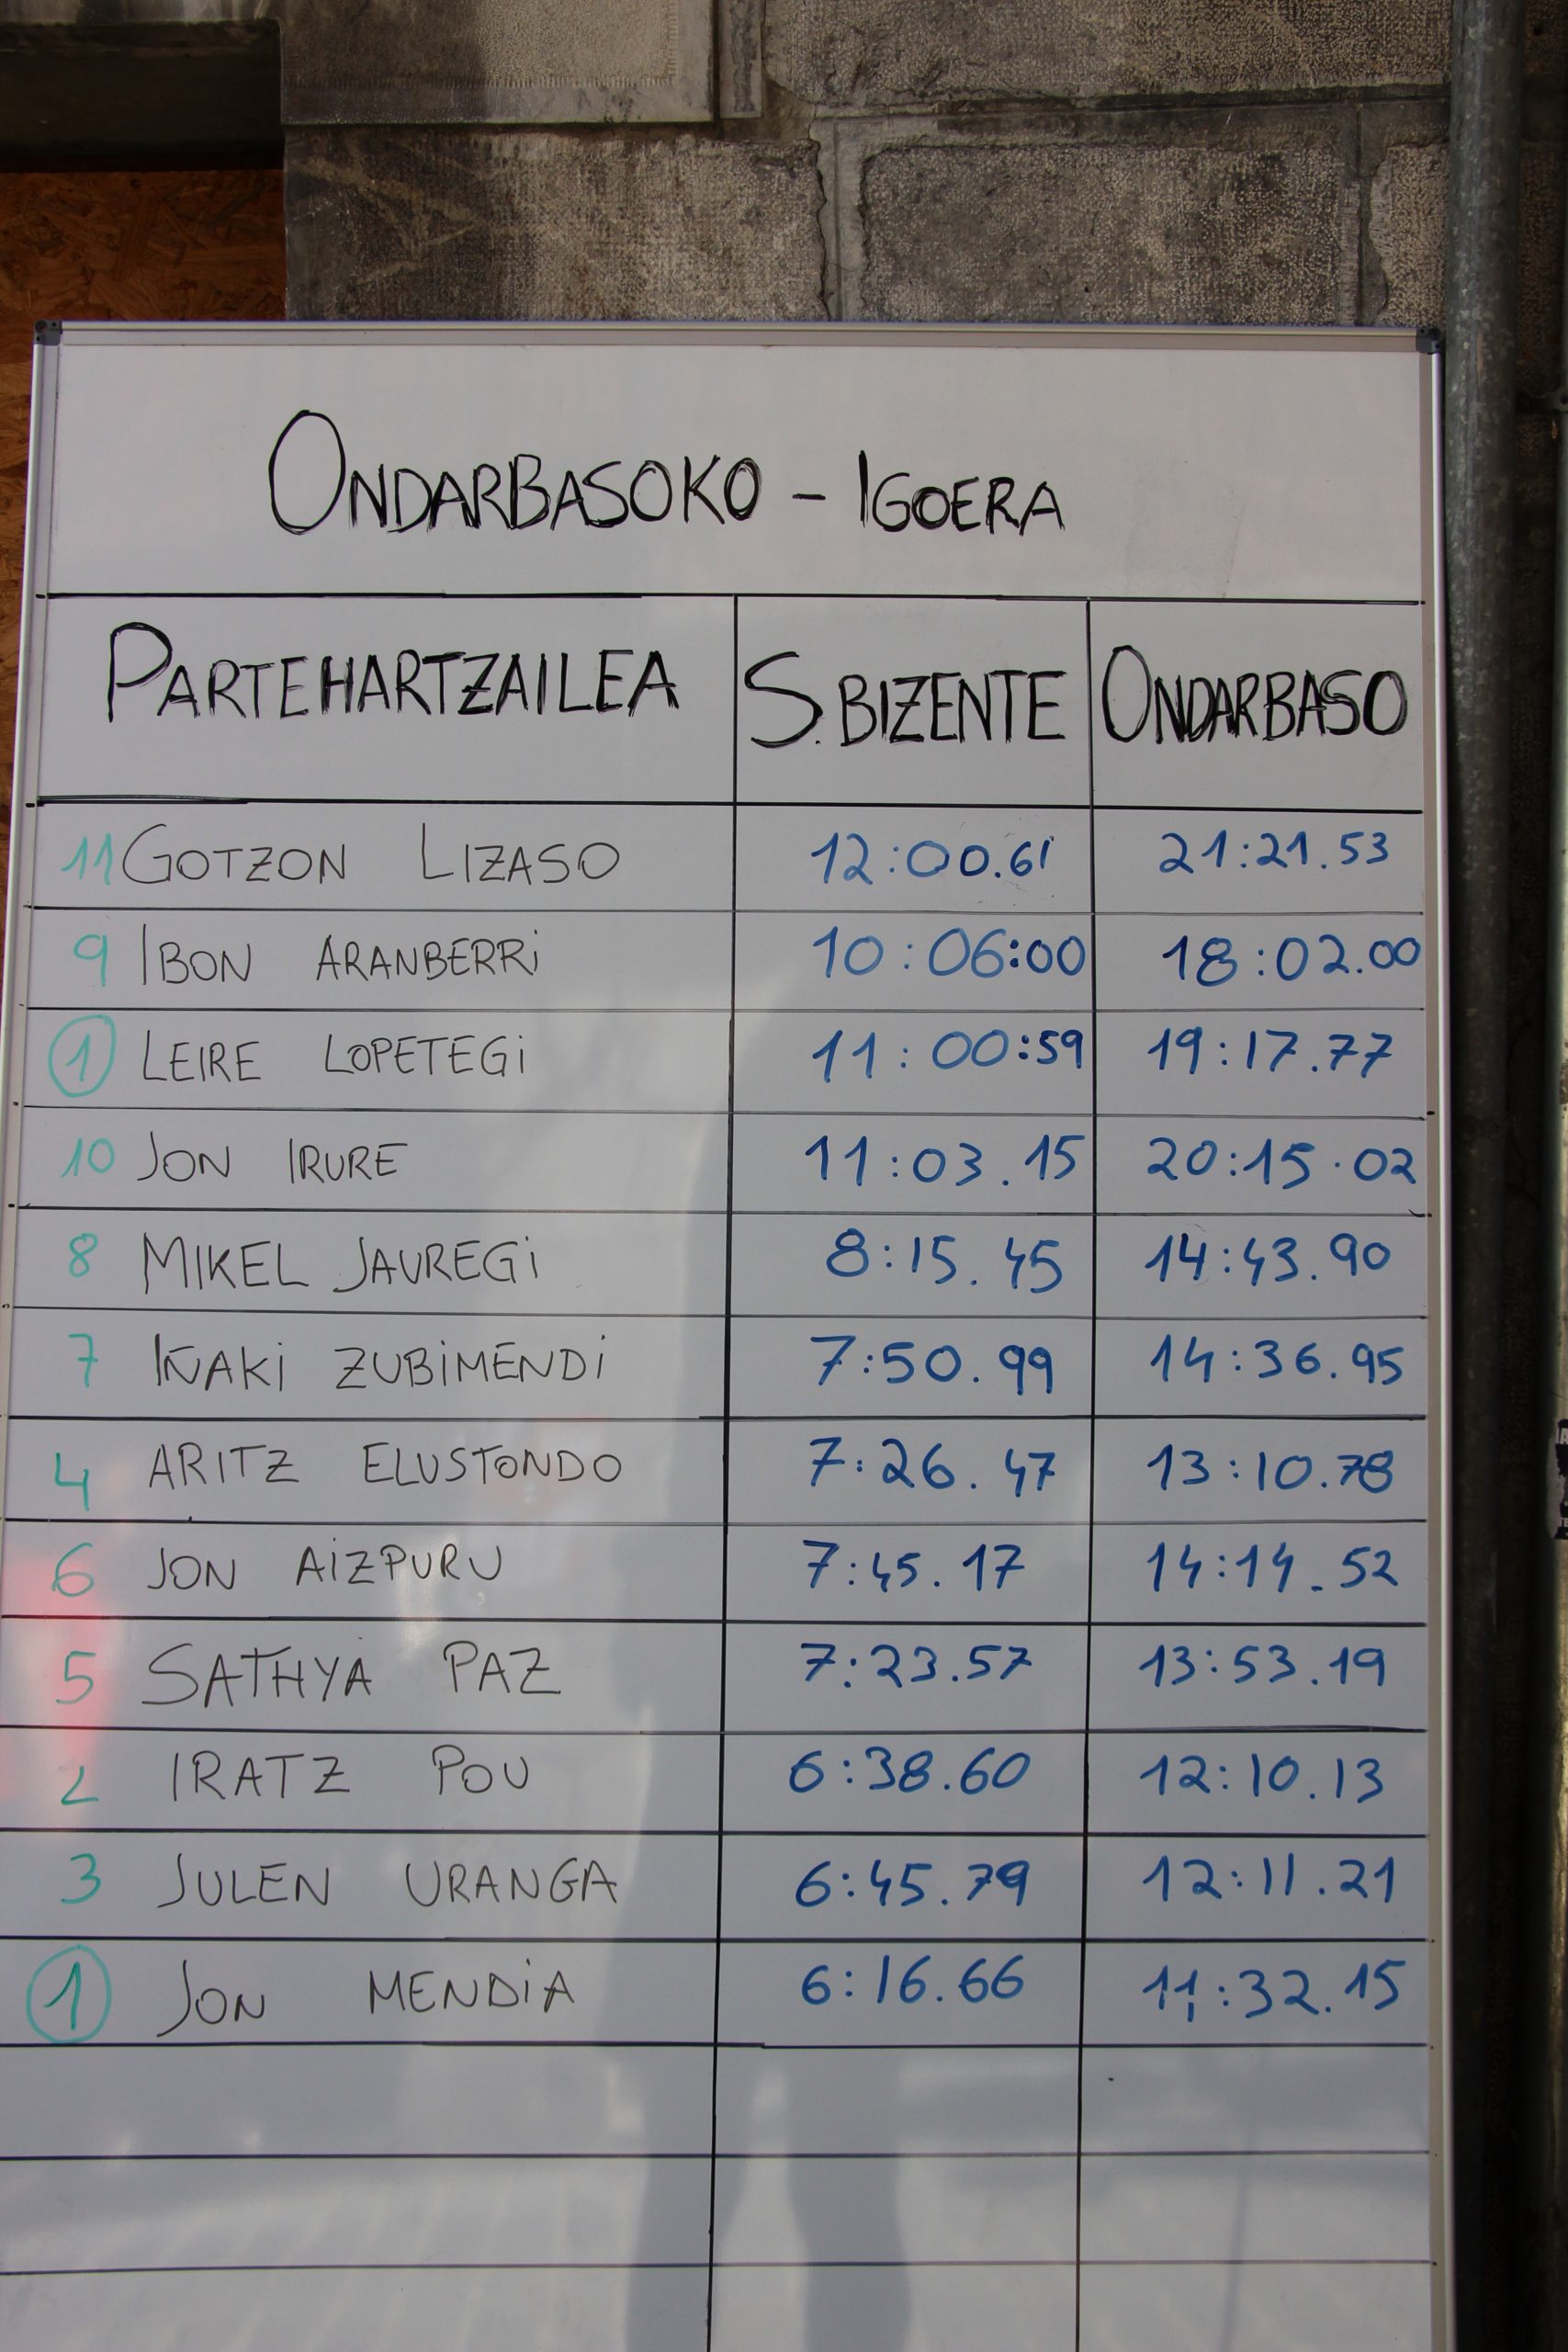 ONDARBASOKO - IGOERA
PARTEHARTZAILEA S.BIZENTE ONDARBASO
11 GOTZON LIZASO 12:00.61 21:21.53
9 IBON ARANBERRi 10:06:00 18:02.00
1 LEIRE LOPETEGi 11:00:59 19:17.77
10 JON IRURE 11:03.15 20:15.02
8 MIKEL JAUREGi 8:15.45 14:43.90
7 IÑAKi ZUBiMENDi 7:50.99 14:36.95
4 ARITZ ELUSTONDO 7:26.47 13:10.78
6 JON AiZPURU 7:45.17 14:14.52
5 SATHYA PAZ 7:23.57 13:53.19
2 IRATZ POU 6:38.60 12:10.13
3 JULEN URANGA 6:45.79 12:11.21
1 JON MENDiA 6:16.66 11:32.15